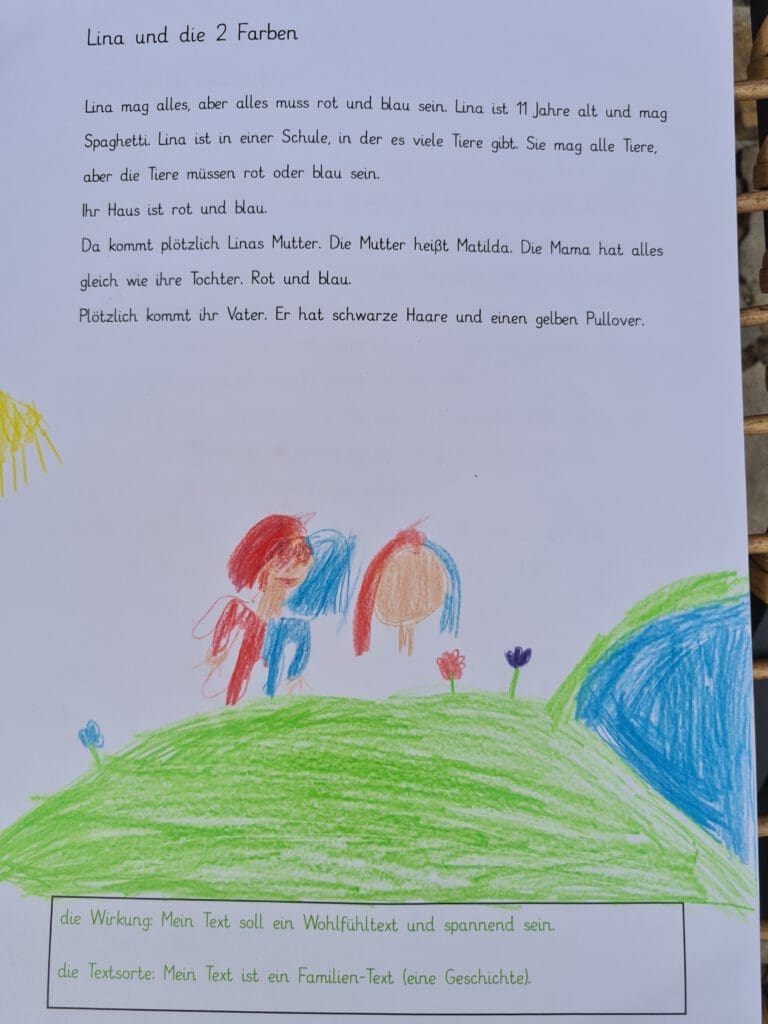 Lina und die 2 Farben
Lina mag alles, aber alles muss rot und blau sein. Lina ist 11 Jahre alt und mag
Spaghetti. Lina ist in einer Schule, in der es viele Tiere gibt. Sie mag alle Tiere,
aber die Tiere müssen rot oder blau sein.
Ihr Haus ist rot und blau.
Da kommt plötzlich Linas Mutter. Die Mutter heißt Matilda. Die Mama hat alles
gleich wie ihre Tochter. Rot und blau.
Plötzlich kommt ihr Vater. Er hat schwarze Haare und einen gelben Pullover.
die Wirkung: Mein Text soll ein Wohlfühltext und spannend sein.
die Textsorte: Mein Text ist ein Familien-Text (eine Geschichte).